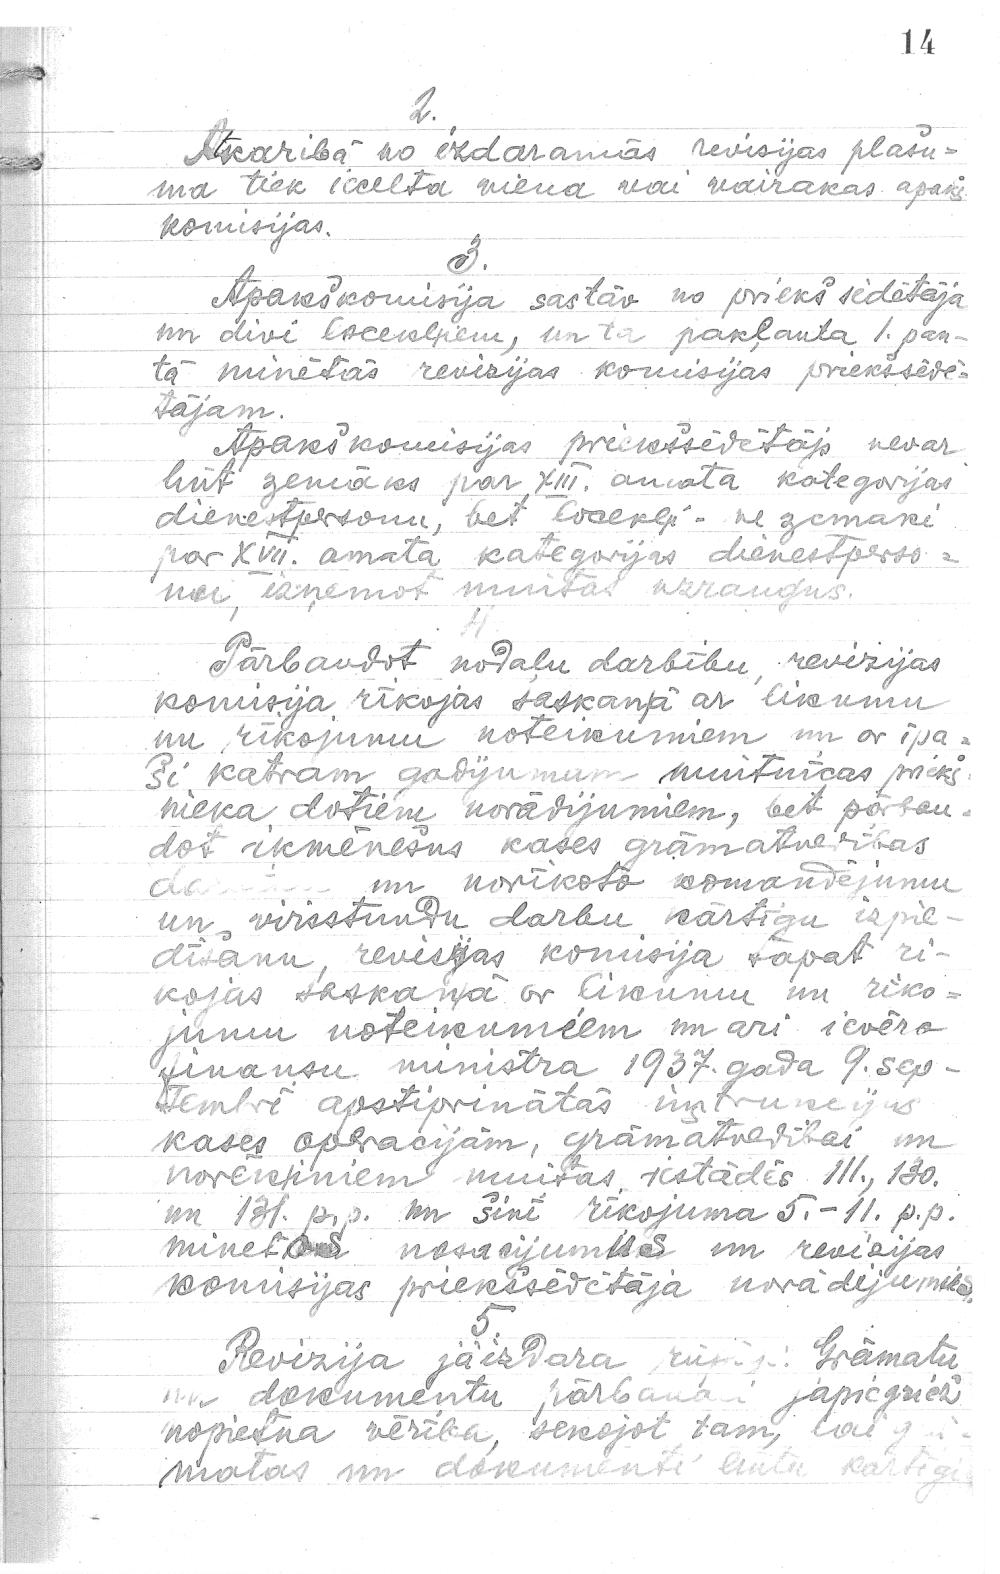 14
2.
Atkaribā no izdaramās revisijas plašu=
ma tiek iecelta viena vai vairakas apakš
komisijas.
3.
Apakškomisija sastāv no priekšsēdētāja
un divi locekļiem, un ta pakļauta 1. pan-
tā minētās revizijas komisijas priekšsēdē=
tājam.
Apakškomisijas priekšsēdētājs nevar
būt zemāks par XIII. amata kategorijas
dienestpersonu, bet locekļi - ne zemaki
par XVII. amata kategorijas dienestperso=
nu, izņemot muitas uzraugus.
4
Pārbaudot nodaļu darbību, revizijas
komisija rīkojas saskaņā ar likumu
un rīkojumu noteikumiem un ar īpa=
ši katram gadījumam muitnīcas priekš
nieka dotiem norādījumiem, bet pārbau=
dot ikmēnešus kases grāmatvedības
un norīkoto komandējumu
un virsstundu darbu kārtīgu izpil-
dīšanu, revisijas komisija tāpat rī-
kojas saskaņā ar likumu un rīko=
jumu noteikumiem un ari ievēro
finansu ministra 1937. gada 9. sep-
tembrī apstiprinātās instrukcijas
kases operacijām, grāmatvedībai un
norēķiniem muitas iestādēs 111., 130.
un 131. p.p. un šinī rīkojuma 5.-11. p.p.
minetos nosacijumus un revizijas
komisijas priekšsēdētāja norādijumus.
5
Revizija jāizdara rūpīgi. Grāmatu
un dokumentu pārbaudei jāpiegriež
nopietna vērība, sekojot tam, lai grā-
matas un dokumenti butu kartigi